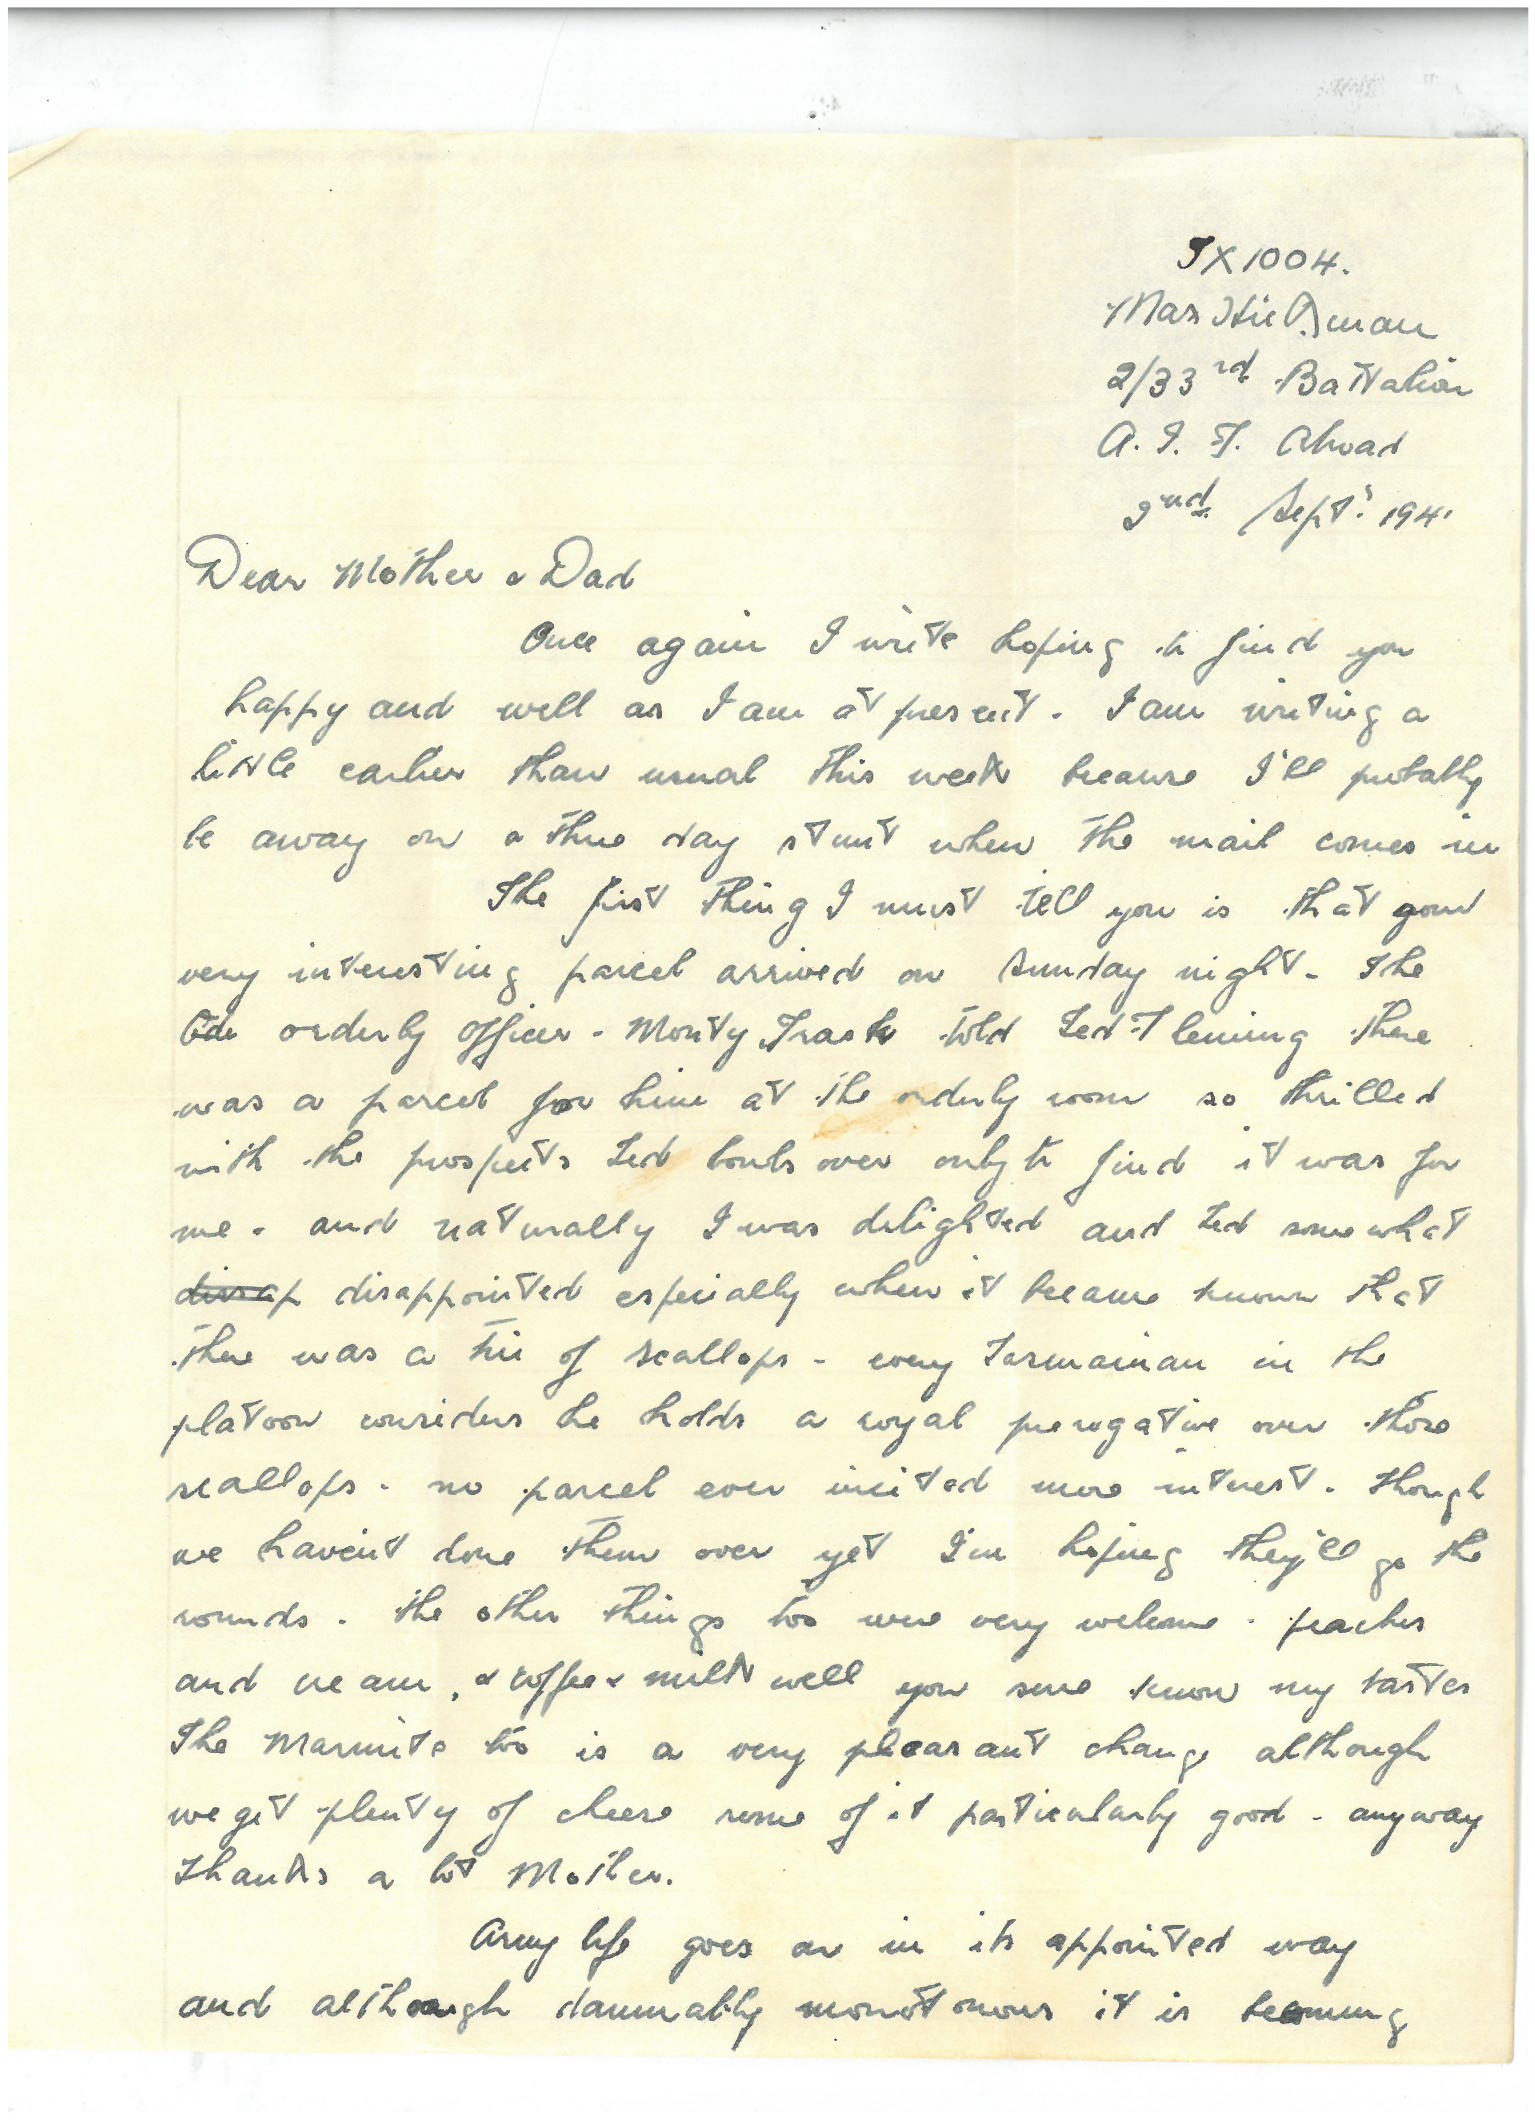 TX1004.
Max Hickman
2/33rd Battalion
A. I. F. Abroad
2nd Sept: 1941
Dear Mother & Dad
Once again I write hoping to find you
happy and well as I am at present. I am writing a
little earlier than usual this week because I'll probably
be away on a three day stunt when the mail comes in
The first thing I must tell you is that your
very interesting parcel arrived on Sunday night. The
orderly officer - Monty Trask told Ted Fleming there
was a parcel for him at the orderly room so thrilled
with the prospects Ted bowls over only to find it was for
me. and naturally I was delighted and Ted somewhat
dissap disappointed especially when it became known that
there was a tin of scallops - every Tasmainan in the
platoon considers he holds a royal perogative over those
scallops. no parcel ever incited more interest. though
we havent done them over yet I'm hoping they'll go the
rounds. the other things too were very welcome. peaches
and cream, & coffee & milk well you sure know my tastes
The Marmite too is a very pleasant change although
we get plenty of cheese some of it particularly good - anyway
thanks a lot Mother.
Army life goes on in its appointed way
and although damnably monotonous it is becoming